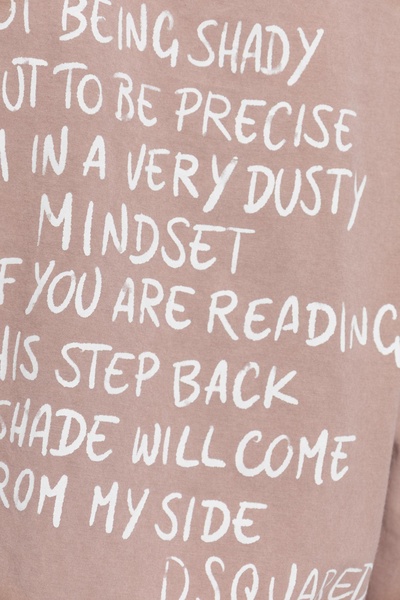 OT BEING SHADY
UT TO BE PRECISE
M IN A VERY DUSTY
MINDSET
F YOU ARE READING
HIS STEP BACK
SHADE WILL COME
ROM MY SIDE
DSQUARED